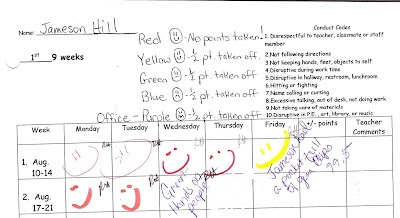 Name: Jameson Hill
1st 9 weeks
Red - No points taken!
Yellow - ½ pt. taken off
Green - ½ pt. taken off
Blue - ½ pt. taken off
Office - Purple - ½ pt taken off
Conduct Codes
1. Disrespectful to teacher, classmate or staff member
2.Not following directions
3.Not keeping hands, feet, objects to self
4.Disruptive during work time
5.Disruptive in hallway, restroom, lunchroom
6.Hitting or fighting
7.Name calling or cursing
8.Excessive talking, out of desk, not doing work
9.Not taking care of materials
10.Disruptive in P.E., art, library, or music
Week Monday Tuesday Wednesday Thursday Friday +/- points Teacher Comments
1. Aug. 10-14
Red Red Red Red
Jameson had
99.5
2. Aug. 17-21
Red Red
Green
Hands on people